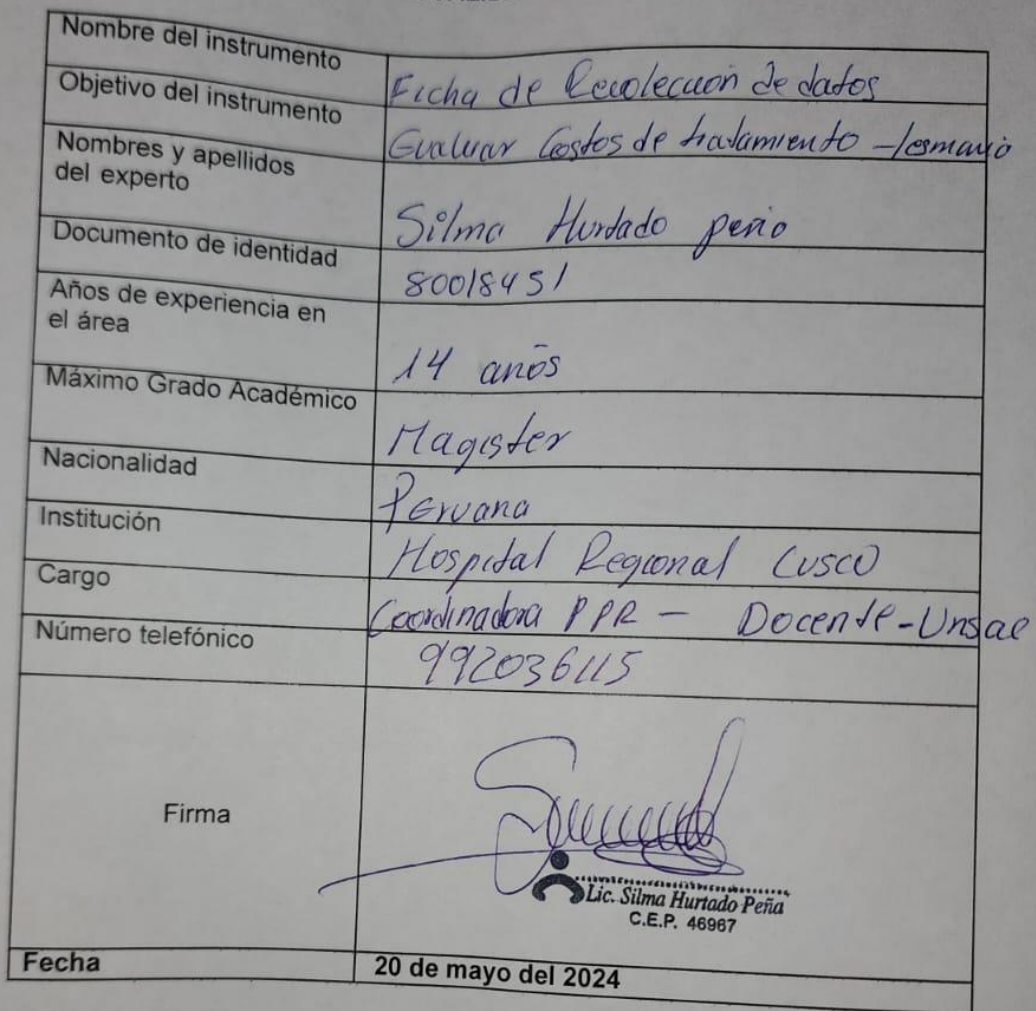 Nombre del instrumento
Ficha de Recolección de datos
Objetivo del instrumento
Evaluar Costos de tratamiento -
Nombres y apellidos
del experto
Silma Hurtado peña
Documento de identidad
80018451
Años de experiencia en
el área
14 años
Máximo Grado Académico
Magister
Nacionalidad
Peruana
Institución
Hospital Regional Cusco
Cargo
Coordinadora PPR - Docente-Unsac
Número telefónico
992036115
Firma
Lic. Silma Hurtado Peña
C.E.P. 46967
Fecha
20 de mayo del 2024